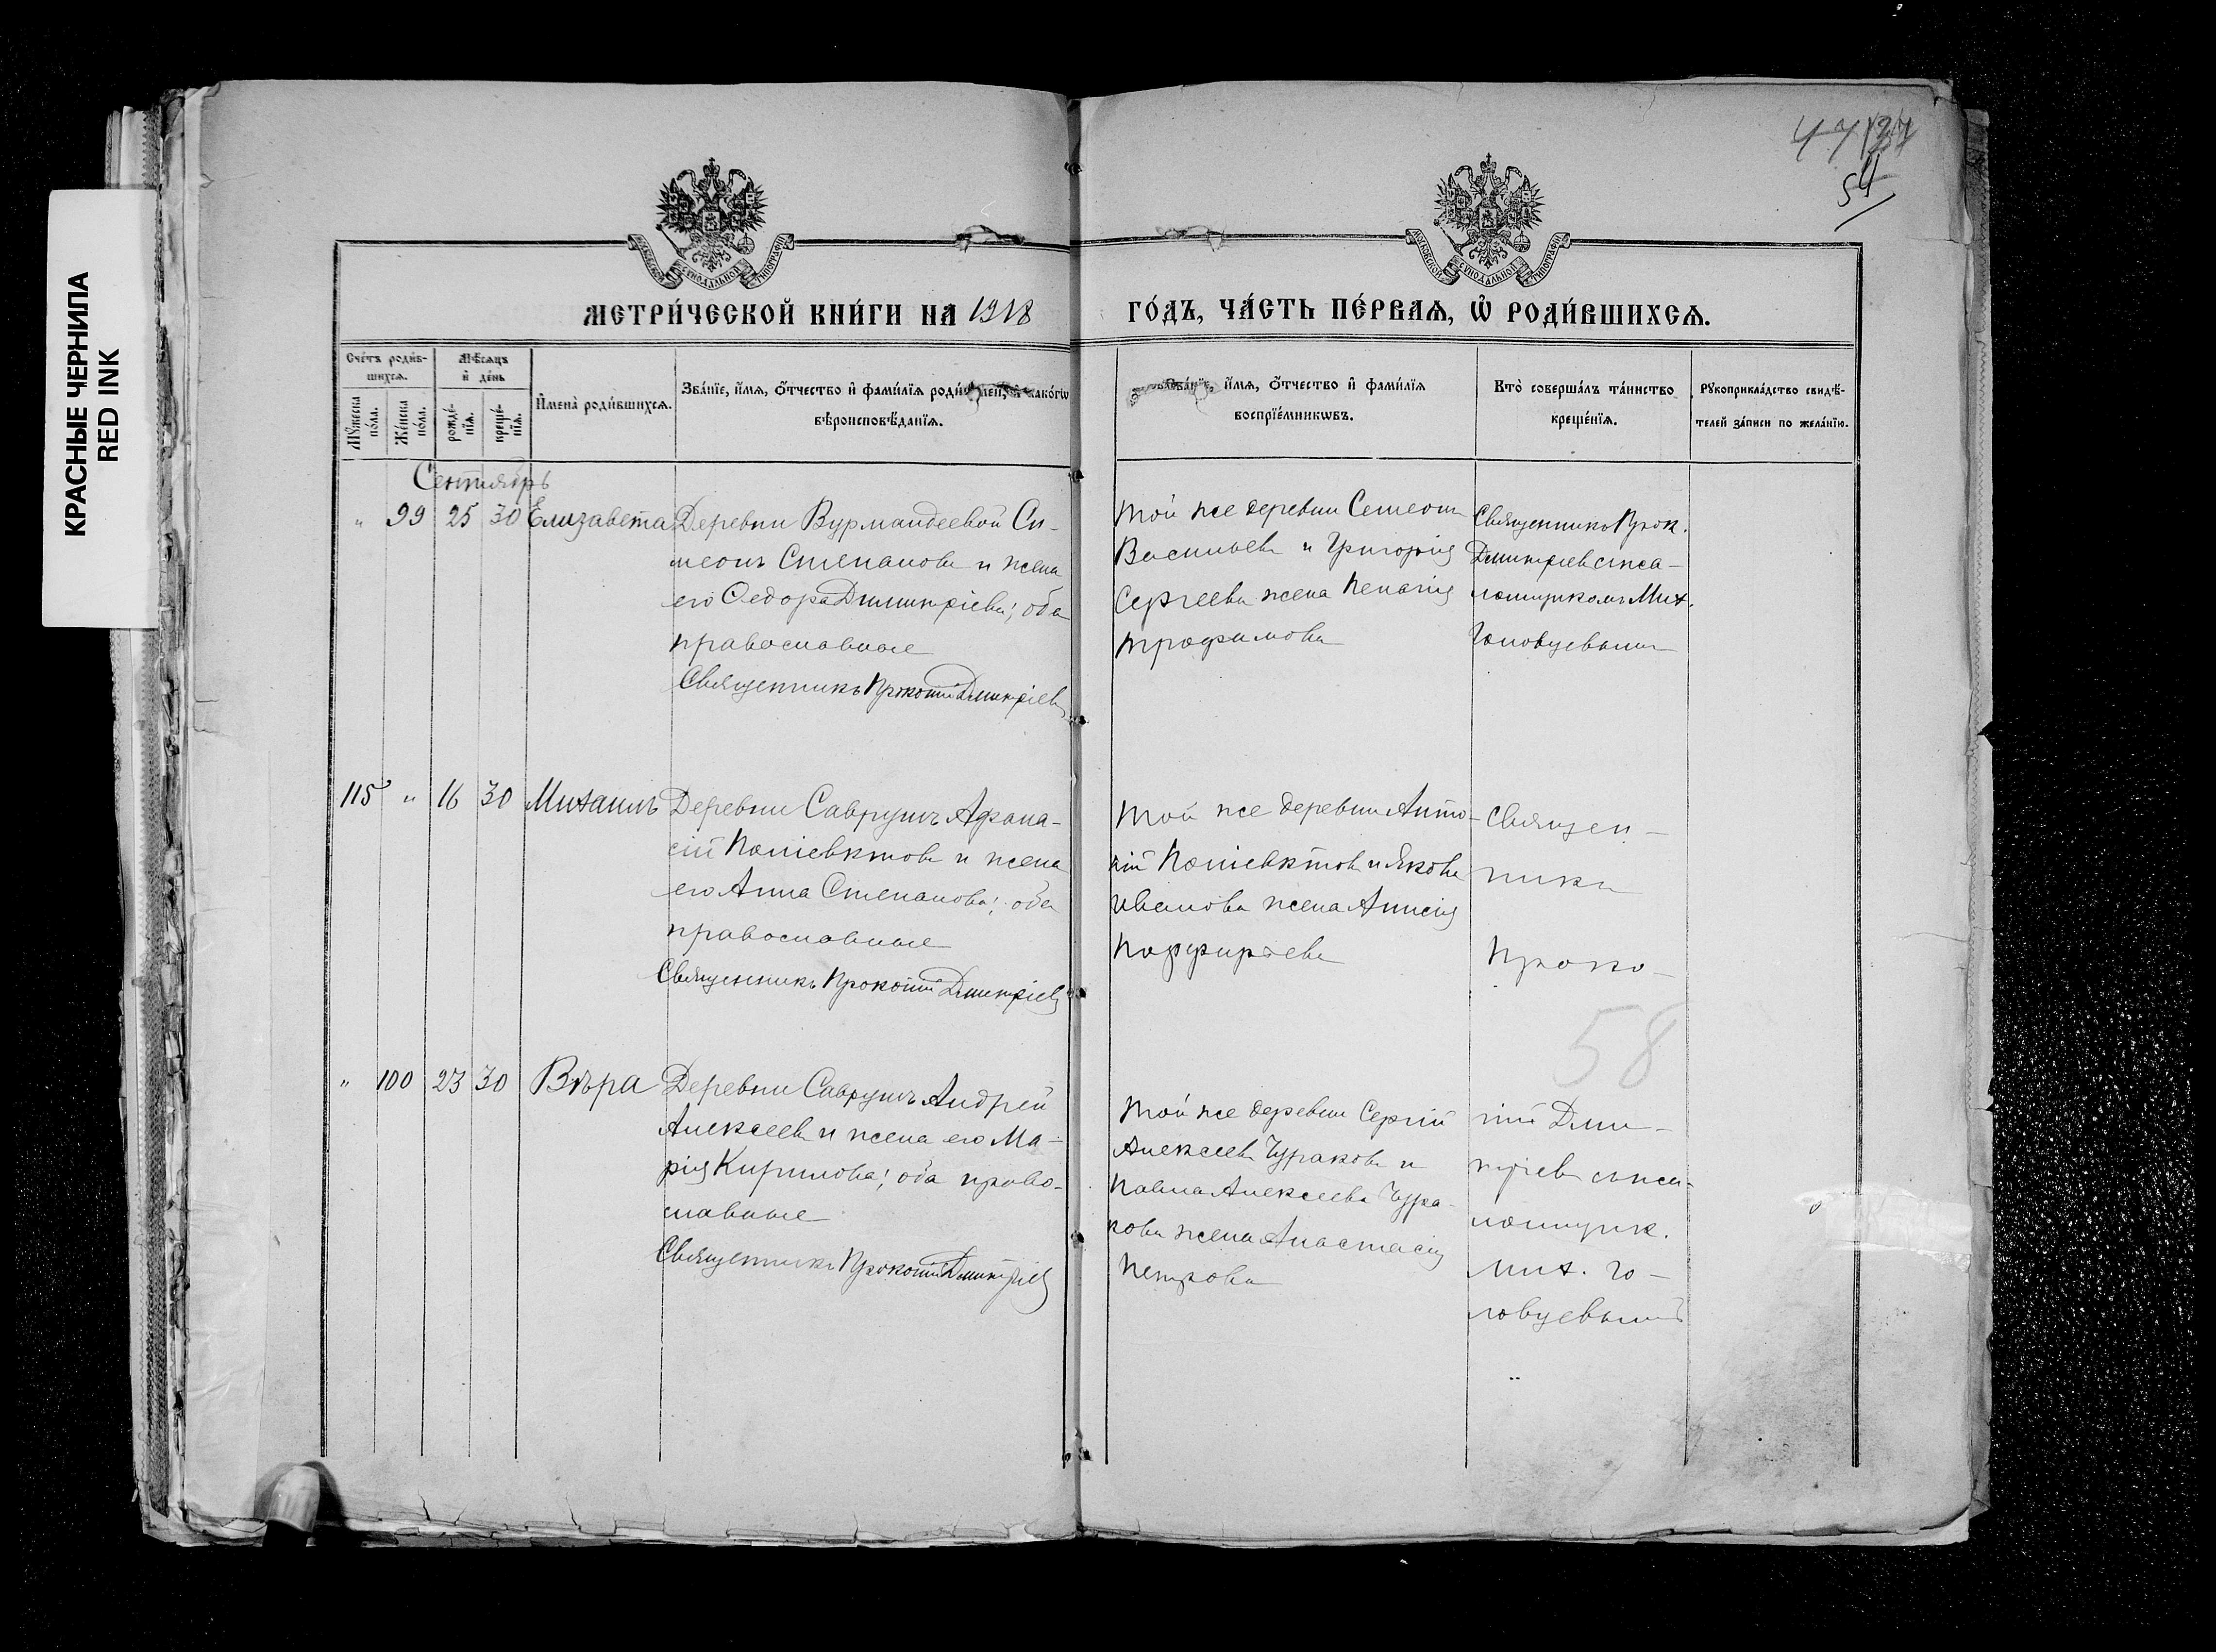 КРАСНЫЕ ЧЕРНИЛА
RED INK
54
МОСКОВСКОЙ СѴНОДАЛЬНОЙ ТИПОГРАФІИ
МОСКОВСКОЙ СѴНОДАЛЬНОЙ ТИПОГРАФІИ
МЕТРИ́ЧЕСКОЙ КНИ́ГИ НА 1918
ГО́ДЪ, ЧА́СТЬ ПЕ́РВАѦ, Ѡ РОДИ́ВШИХСѦ.
Сче́тъ роди́в-
шихсѧ.
Мѹ́жеска по́ла.
Же́нска по́ла.
Мѣ́сѧцъ
и҆ де́нь
рожде́-
нїѧ.
креще́-
нїѧ.
И҆мена̀ роди́вшихсѧ.
Зва́нїе, и҆́мѧ, ѻ҆́тчество и҆ фами́лїѧ роди́телей, и҆ како́гѡ
вѣроисповѣ́данїѧ.
Зва́нїе, и҆́мѧ, ѻ҆́тчество и҆ фами́лїѧ
воспрїе́мникѡвъ.
Кто̀ соверша́лъ та́инство
креще́нїѧ.
Рѹкоприкла́дство свидѣ́-
телей за́писи по жела́нїю.
Сентябрь
" 99 25 30 Елизавета
Деревни Вурмандеевой Си-
меонъ Степановъ и жена
его Ѳедора Димитріева; оба
православные
Священникъ Прокопій Димитріевъ
Той же деревни Симеонъ
Васильевъ и Григорія
Сергеева жена Пелагія
Трофимова
Священникъ Прок.
Димитріевъ съ пса-
ломщикомъ Мих.
Головцевымъ
115 " 16 30 Михаилъ
Деревни Саврушъ Афана-
сій Поліевктовъ и жена
его Анна Степанова; оба
православные
Священникъ Прокопій Димитріевъ
Той же деревни Анто-
ній Поліевктовъ и Якова
Иванова жена Анисія
Порфирьева
Священ-
никъ
Проко-
58
" 100 23 30 Вѣра
Деревни Саврушъ Андрей
Алексеевъ и жена его Ма-
рія Кирилова; оба право-
славные
Священникъ Прокопій Димитріевъ
Той же деревни Сергій
Алексеевъ Чураковъ и
Павла Алексеева Чура-
кова жена Анастасія
Петрова
пій Дми-
тріевъ съ пса-
ломщик.
Мих. Го-
ловцевымъ